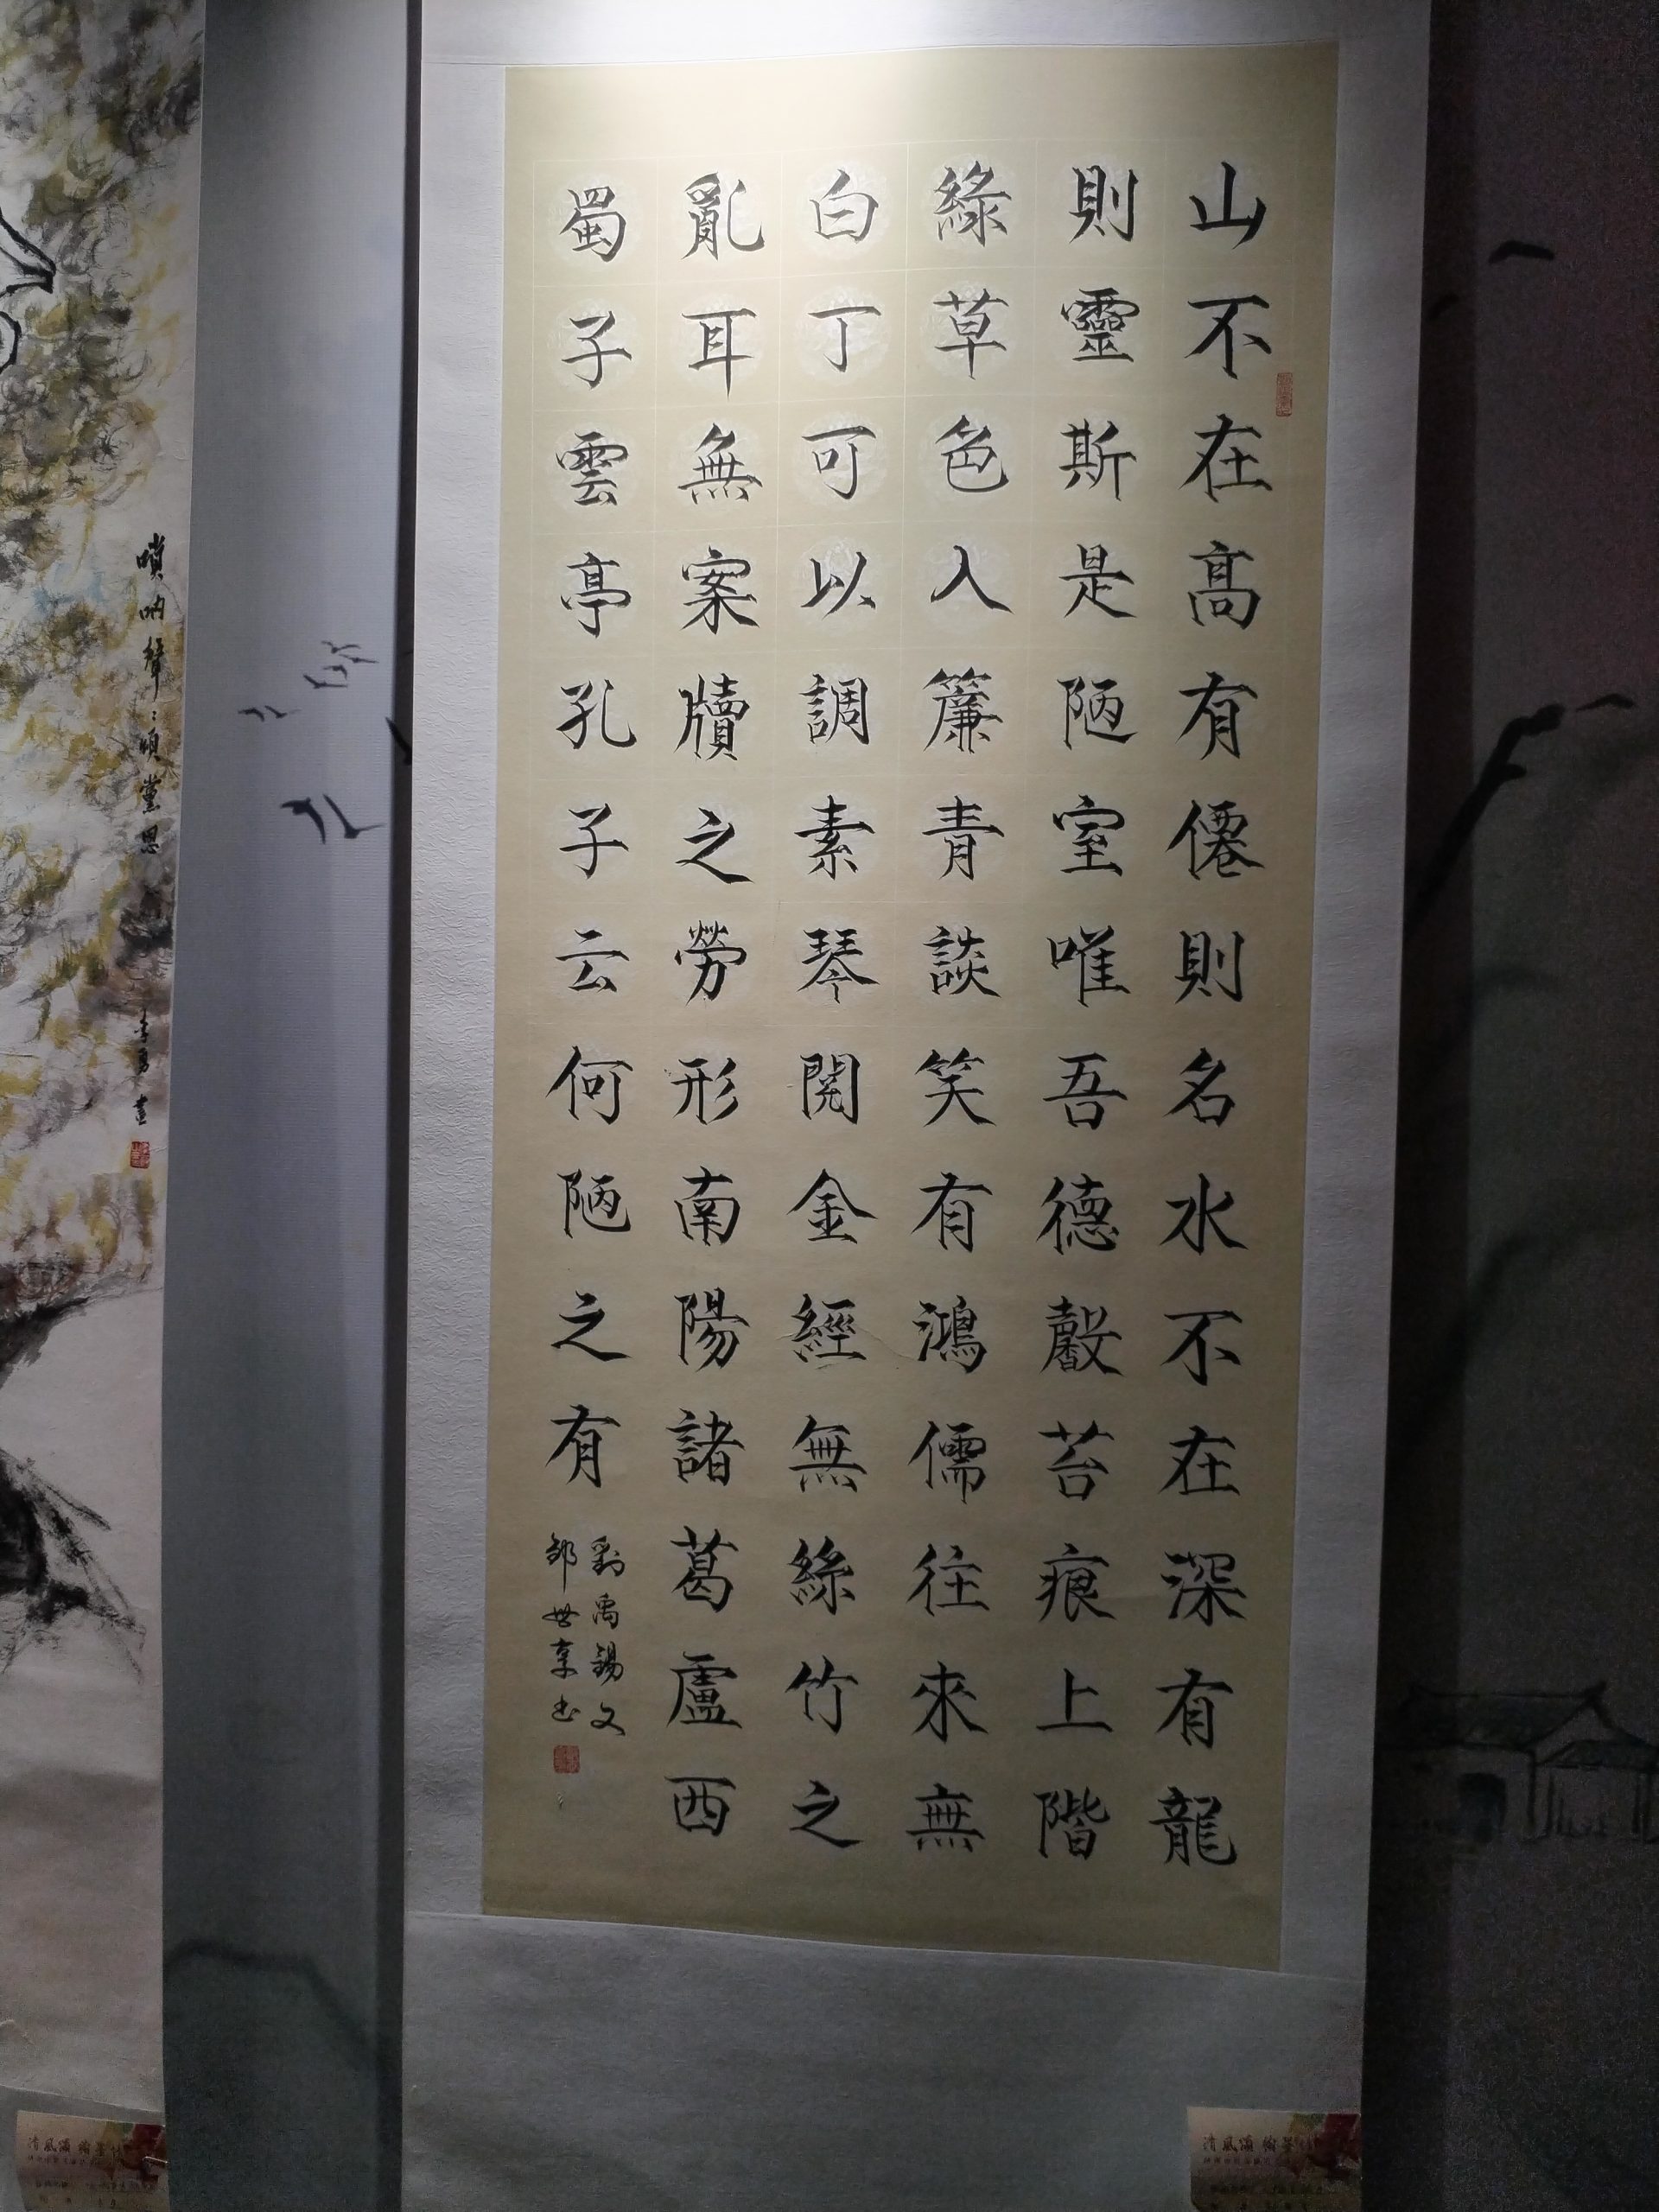 山不在高有僊則名水不在深有龍
則靈斯是陋室唯吾德馨苔痕上階
綠草色入簾青談笑有鴻儒往來無
白丁可以調素琴閱金經無絲竹之
亂耳無案牘之勞形南陽諸葛廬西
蜀子雲亭孔子云何陋之有
劉禹錫文
鄒世享书
嗩吶聲聲頌黨恩
李勇畫
清風頌 翰墨
清風頌 翰墨